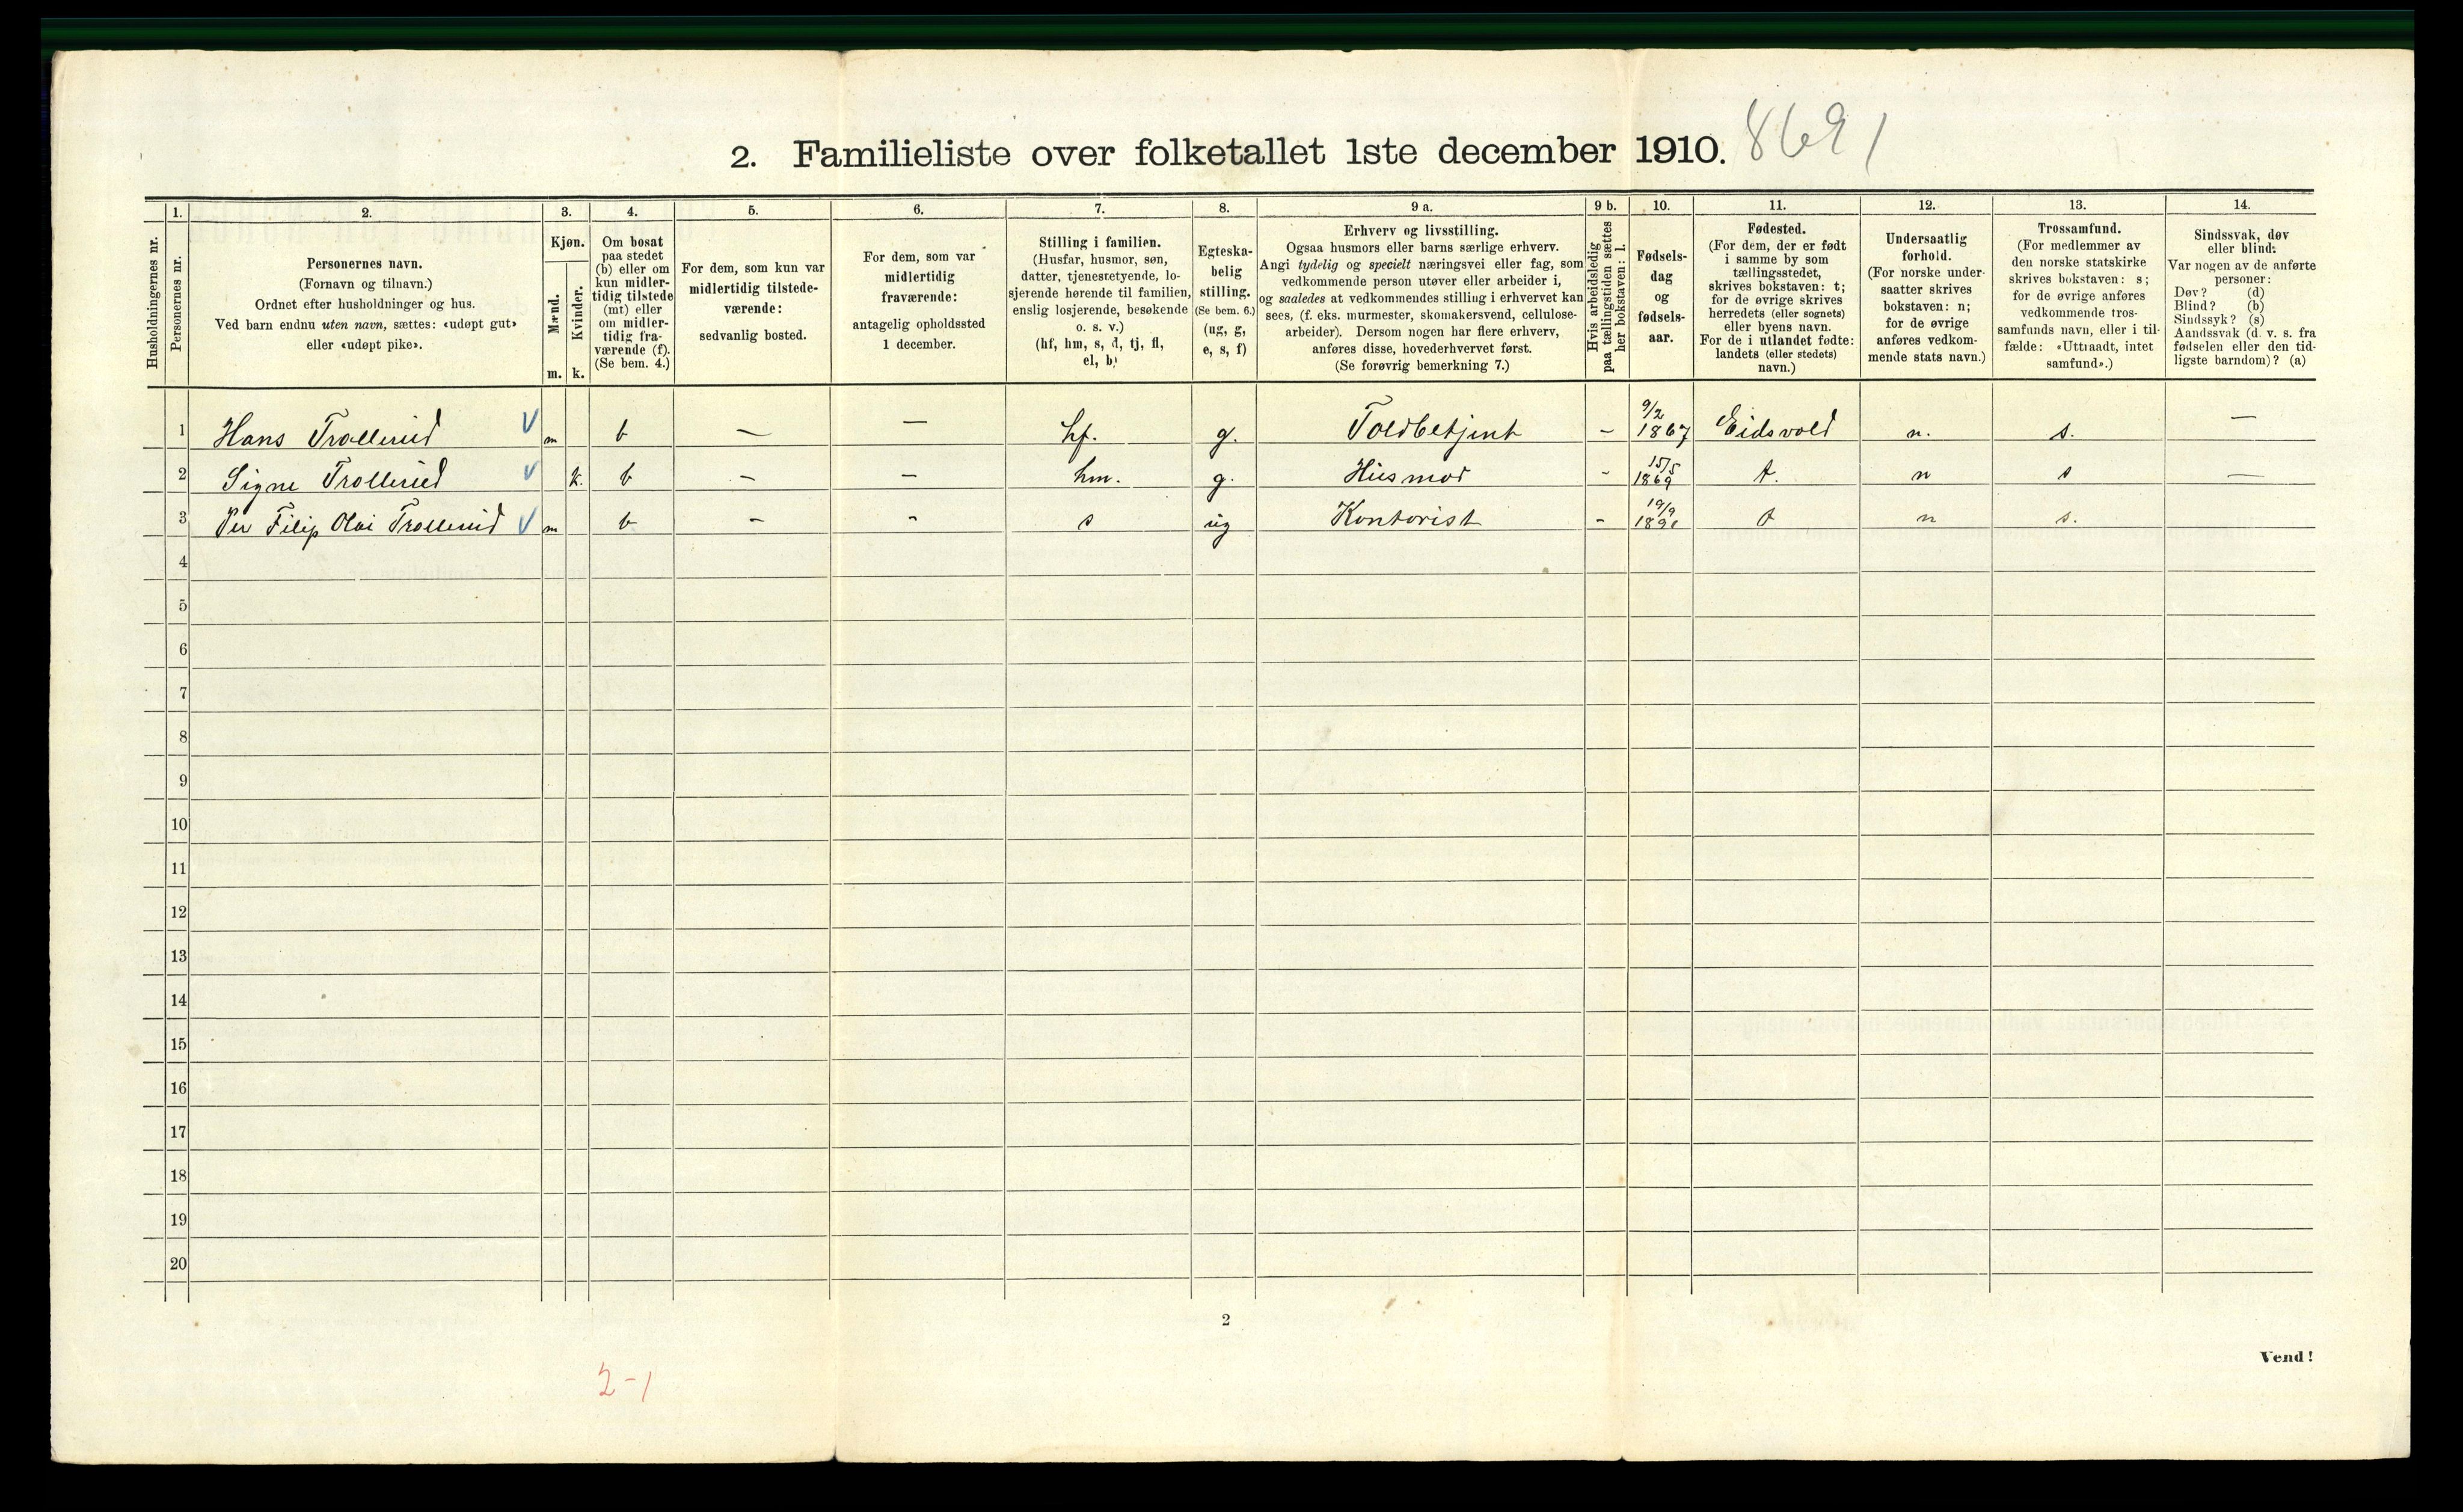 2. Familieliste over folketallet 1ste december 1910. 8691
1. 2. 3. 4. 5. 6. 7. 8. 9 a. 9 b. 10. 11. 12. 13. 14.
Husholdningernes nr.
Personernes nr.
Personernes navn.
(Fornavn og tilnavn.)
Ordnet efter husholdninger og hus.
Ved barn endnu uten navn, sættes: «udøpt gut»
eller «udøpt pike».
Kjøn.
Mænd.
Kvinder.
m. k.
Om bosat
paa stedet
(b) eller om
kun midler-
tidig tilstede
(mt) eller
om midler-
tidig fra-
værende (f).
(Se bem. 4.)
For dem, som kun var
midlertidig tilstede-
værende:
sedvanlig bosted.
For dem, som var
midlertidig
fraværende:
antagelig opholdssted
1 december.
Stilling i familien.
(Husfar, husmor, søn,
datter, tjenestetyende, lo-
sjerende hørende til familien,
enslig losjerende, besøkende
o. s. v.)
(hf, hm, s, d, tj, fl,
el, b)
Egteska-
belig
stilling.
(Se bem. 6.)
(ug, g,
e, s, f)
Erhverv og livsstilling.
Ogsaa husmors eller barns særlige erhverv.
Angi tydelig og specielt næringsvei eller fag, som
vedkommende person utøver eller arbeider i,
og saaledes at vedkommendes stilling i erhvervet kan
sees, (f. eks. murmester, skomakersvend, cellulose-
arbeider). Dersom nogen har flere erhverv,
anføres disse, hovederhvervet først.
(Se forøvrig bemerkning 7.)
Hvis arbeidsledig
paa tællingstiden sættes
her bokstaven: l.
Fødsels-
dag
og
fødsels-
aar.
Fødested.
(For dem, der er født
i samme by som
tællingsstedet,
skrives bokstaven: t;
for de øvrige skrives
herredets (eller sognets)
eller byens navn.
For de i utlandet fødte:
landets (eller stedets)
navn.)
Undersaatlig
forhold.
(For norske under-
saatter skrives
bokstaven: n;
for de øvrige
anføres vedkom-
mende stats navn.)
Trossamfund.
(For medlemmer av
den norske statskirke
skrives bokstaven: s;
for de øvrige anføres
vedkommende tros-
samfunds navn, eller i til-
fælde: «Uttraadt, intet
samfund».)
Sindssvak, døv
eller blind:
Var nogen av de anførte
personer:
Døv? (d)
Blind? (b)
Sindssyk? (s)
Aandssvak (d. v. s. fra
fødselen eller den tid-
ligste barndom)? (a)
1 Hans Trollerud m b — — hf. g. Toldbetjent - 9/2 1867 Eidsvold n. s. —
2 Signe Trollerud k. b - - hm. g. Husmor - 15/5 1869 t. n s —
3 Per Filip Olai Trollerud m b - - s ug Kontorist - 19/9 t n s.
4
5
6
7
8
9
10
11
12
13
14
15
16
17
18
19
20
2
Vend!
2-1